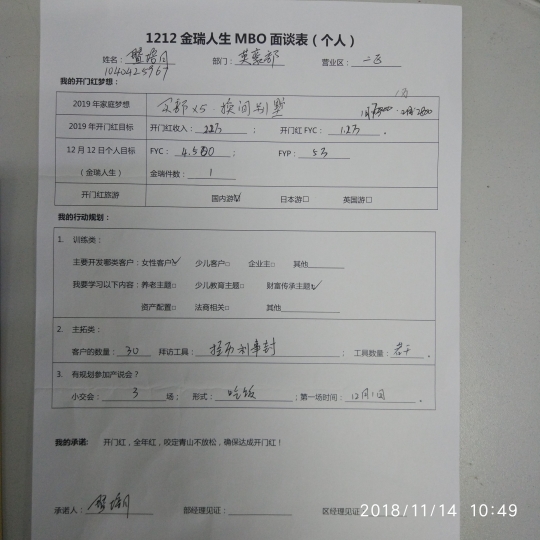 1212 金瑞人生 MBO 面谈表（个人）
姓名： 部门： 营业区：二区
1040425967
我的开门红梦想：
2019 年家庭梦想 换间别墅
2019 年开门红目标 开门红收入： ； 开门红 FYC：1.2万。
12 月 12 日个人目标 FYC： ； FYP：5万
（金瑞人生） 金瑞件数：1
开门红旅游 国内游☑ 日本游□ 英国游□
我的行动规划：
1. 训练类：
主要开发哪类客户：女性客户☑ 少儿客户□ 企业主□ 其他
我要学习以下内容：养老主题□ 少儿教育主题□ 财富传承主题☑
资产配置□ 法商相关□ 其他
2. 主拓类：
客户的数量：30 拜访工具：利事封 ； 工具数量：若干。
3. 有规划参加产说会？
小交会：3 场； 形式：吃饭 ；第一场时间：12月1日。
我的承诺： 开门红，全年红，咬定青山不放松，确保达成开门红！
承诺人： 部经理见证： 区经理见证
2018/11/14 10:49